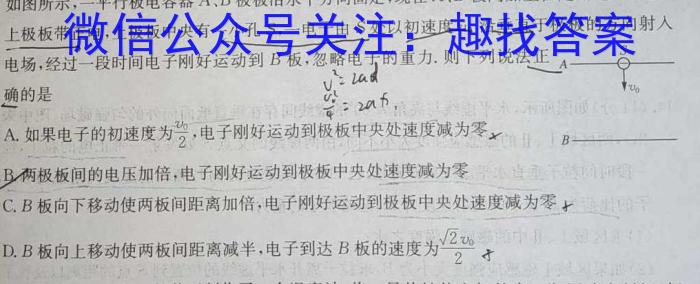 如图所示,一平行板电容器A、B极板沿水平方向固定,
上极板带正电,上极板中央有一小孔
微信公众号关注：趣找答案
处以初速度 垂直于极板的方向射入
电场,经过一段时间电子刚好运动到B板,忽略电子的重力.则下列说法正
确的是
v₀²=2ad
A
v₀
A.如果电子的初速度为v₀/2,电子刚好运动到极板中央处速度减为零
B
B.两极板间的电压加倍,电子刚好运动到极板中央处速度减为零
C.B板向下移动使两板间距离加倍,电子刚好运动到极板中央处速度减为零
D.B板向上移动使两板间距离减半,电子到达B板的速度为√2v₀/2